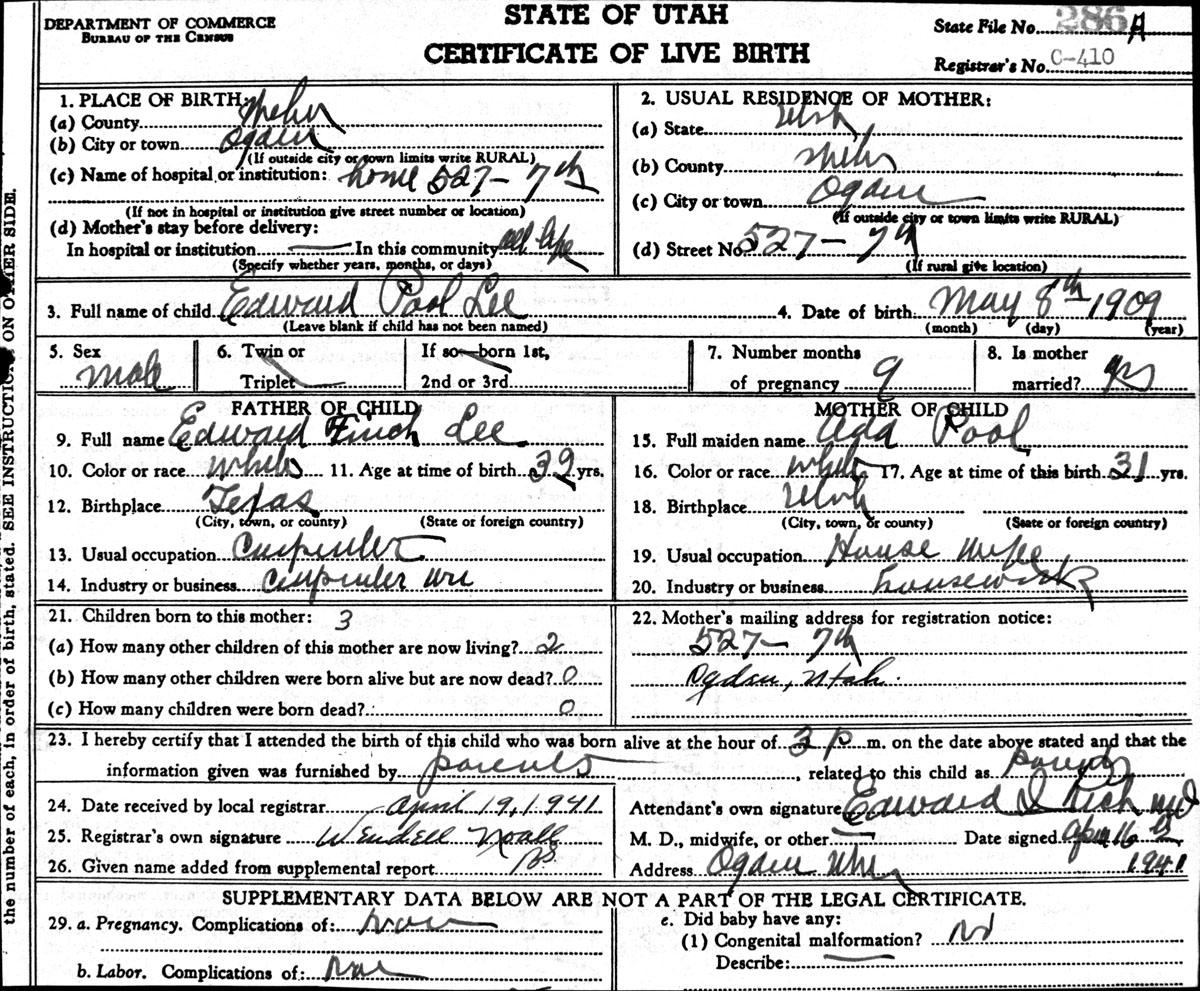 DEPARTMENT OF COMMERCE
BUREAU OF THE CENSUS
STATE OF UTAH
CERTIFICATE OF LIVE BIRTH
State File No. 286 A
Registrar's No. C-410
1. PLACE OF BIRTH:
(a) County Weber
(b) City or town Ogden
(If outside city or town limits write RURAL)
(c) Name of hospital or institution: home 527 - 7th
(If not in hospital or institution give street number or location)
(d) Mother's stay before delivery:
In hospital or institution In this community all life
(Specify whether years, months, or days)
2. USUAL RESIDENCE OF MOTHER:
(a) State Utah
(b) County Weber
(c) City or town Ogden
(If outside city or town limits write RURAL)
(d) Street No. 527 - 7th
(If rural give location)
3. Full name of child Edward Pool Lee 4. Date of birth May 8th 1909
(Leave blank if child has not been named) (month) (day) (year)
5. Sex Male
6. Twin or
Triplet
If so—born 1st,
2nd or 3rd
7. Number months
of pregnancy 9
8. Is mother
married? yes
FATHER OF CHILD
9. Full name Edward Finch Lee
10. Color or race White 11. Age at time of birth 39 yrs.
12. Birthplace Texas
(City, town, or county) (State or foreign country)
13. Usual occupation Carpenter
14. Industry or business Carpenter
MOTHER OF CHILD
15. Full maiden name Ada Pool
16. Color or race White 17. Age at time of this birth 31 yrs.
18. Birthplace Utah
(City, town, or county) (State or foreign country)
19. Usual occupation House Wife
20. Industry or business housework
21. Children born to this mother: 3
(a) How many other children of this mother are now living? 2
(b) How many other children were born alive but are now dead? 0
(c) How many children were born dead?: 0
22. Mother's mailing address for registration notice:
527 - 7th
Ogden, Utah.
23. I hereby certify that I attended the birth of this child who was born alive at the hour of 3 p m. on the date above stated and that the
information given was furnished by parents, related to this child as parents
24. Date received by local registrar April 19, 1941
25. Registrar's own signature Wendell Noall
26. Given name added from supplemental report
Attendant's own signature Edward I Rich md
M. D., midwife, or other Date signed Apr 16
Address Ogden Utah 1941
SUPPLEMENTARY DATA BELOW ARE NOT A PART OF THE LEGAL CERTIFICATE.
29. a. Pregnancy. Complications of: None
b. Labor. Complications of: None
e. Did baby have any:
(1) Congenital malformation? No
Describe:
the number of each, in order of birth, stated. SEE INSTRUCTION ON OTHER SIDE.